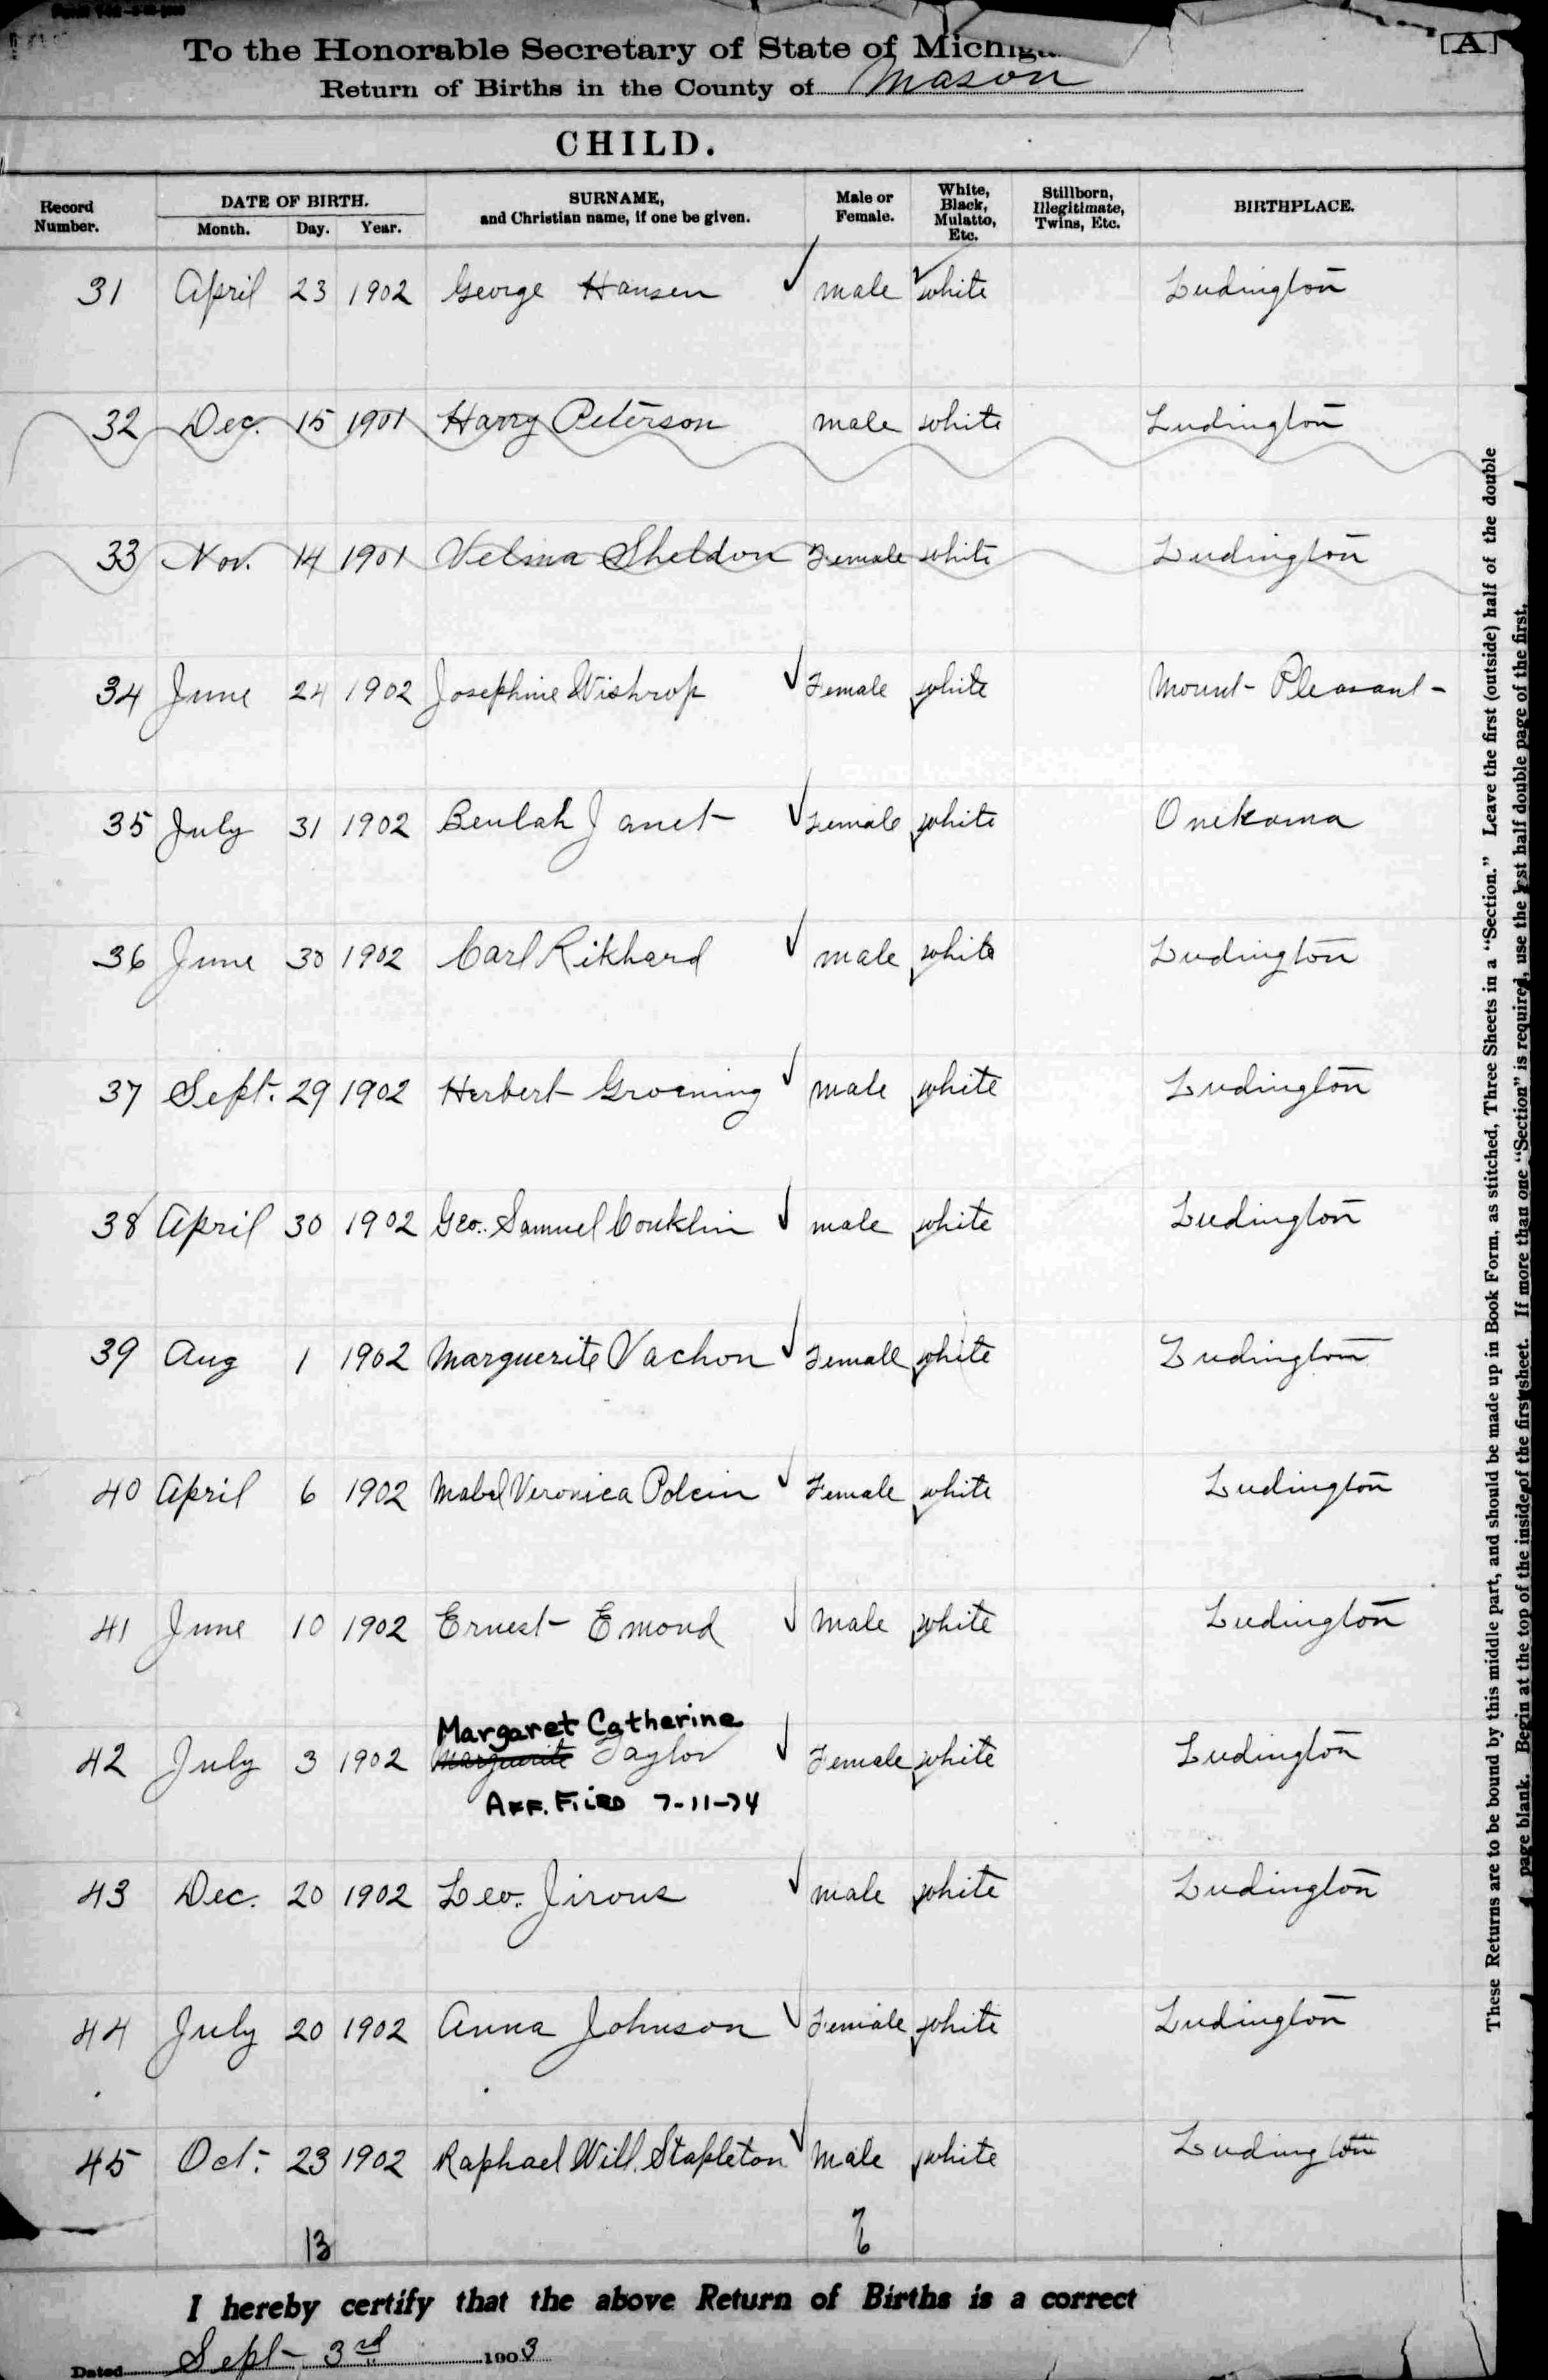 To the Honorable Secretary of State of Michiga
[A]
Return of Births in the County of Mason
CHILD.
Record Number. DATE OF BIRTH. Month. Day. Year. SURNAME, and Christian name, if one be given. Male or Female. White, Black, Mulatto, Etc. Stillborn, Illegitimate, Twins, Etc. BIRTHPLACE.
31 April 23 1902 George Hansen ✓ male ✓ white Ludington
32 Dec. 15 1901 Harry Peterson male white Ludington
33 Nov. 14 1901 Velma Sheldon Female white Ludington
34 June 24 1902 Josephine Wishrop ✓ Female white Mount Pleasant
35 July 31 1902 Beulah Janet ✓ Female white Onekama
36 June 30 1902 Carl Rikhard ✓ male white Ludington
37 Sept. 29 1902 Herbert Groening ✓ male white Ludington
38 April 30 1902 Geo. Samuel Conklin ✓ male white Ludington
39 Aug 1 1902 Marguerite Vachon ✓ Female white Ludington
40 April 6 1902 Mabel Veronica Polcin ✓ Female white Ludington
41 June 10 1902 Ernest Emond ✓ Male white Ludington
Margaret Catherine
42 July 3 1902 Marguerite Taylor ✓ Female white Ludington
Aff. Filed 7-11-74
43 Dec. 20 1902 Leo. Jirous ✓ male white Ludington
44 July 20 1902 Anna Johnson ✓ Female white Ludington
45 Oct. 23 1902 Raphael Will. Stapleton ✓ Male white Ludington
13 7 6
I hereby certify that the above Return of Births is a correct
Dated Sept 3rd 1903
These Returns are to be bound by this middle part, and should be made up in Book Form, as stitched, Three Sheets in a "Section." Leave the first (outside) half of the double
page blank. Begin at the top of the inside of the first sheet. If more than one "Section" is required, use the last half double page of the first,